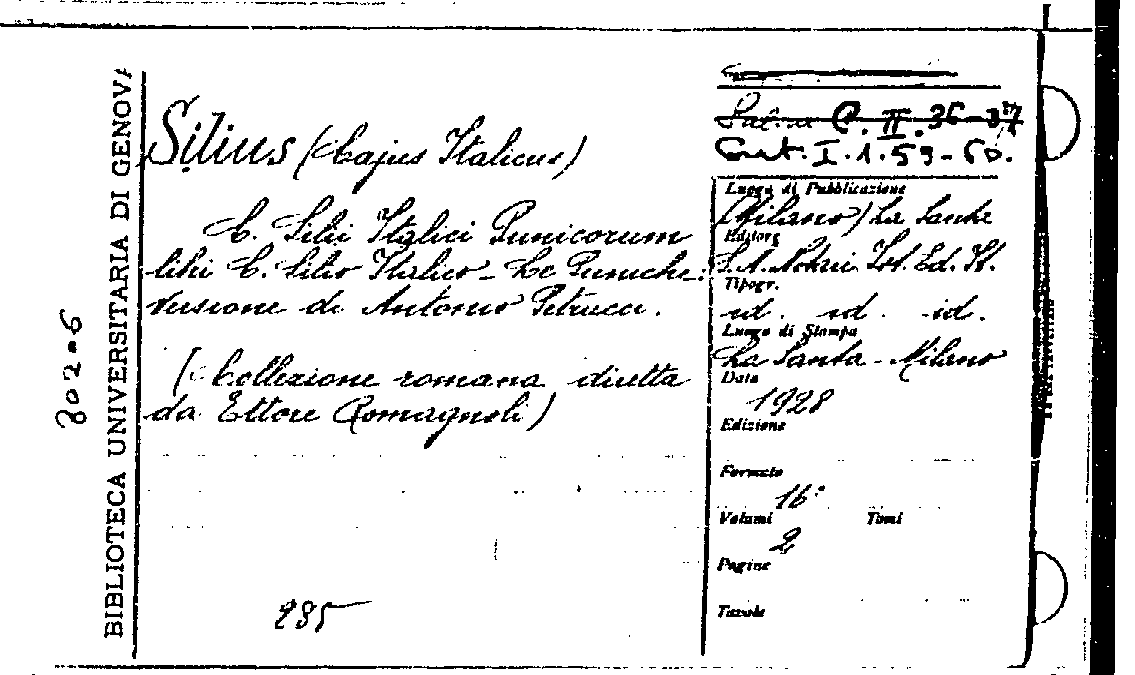 BIBLIOTECA UNIVERSITARIA DI GENOVA
802-6
Silius (Cajus Italicus)
C. Silii Italici Punicorum
libri C. Silio Italico - Le Puniche:
Versione di Antonio Petrucci.
(Collezione romana diretta
da Ettore Romagnoli)
285
C. II. 36-37
Cust. I. 1. 59-60.
Luogo di Pubblicazione
(Milano) La Santa
Editore
S. A. Notari Ist. Ed. It.
Tipogr.
id. id. id.
Luogo di Stampa
La Santa - Milano
Data
1928
Edizione
Formato
16°
Volumi Tomi
2
Pagine
Tavole